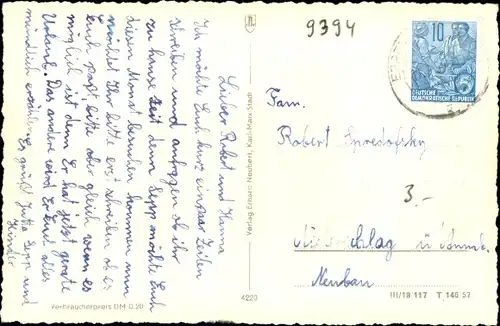 Lieber Robert und Hanna
Ich möchte Euch kurz ein paar Zeilen
schreiben und anfragen ob ihr
zu hause seit denn Sepp möchte Euch
diesen Monat besuchen kommen nun
möchtet Ihr bitte erst schreiben ob es
Euch paßt bitte aber gleich wenn es
möglich ist denn Er hat jetzt gerade
Urlaub. Das andere wird Er Euch alles
mündlich erzählen. Es grüßt Jutta Sepp und
Kinder
Verbraucherpreis DM 0.20
Verlag Erhard Neubert, Karl-Marx-Stadt
4220
9394
10
DEUTSCHE
DEMOKRATISCHE REPUBLIK
Fam.
Robert
3.-
ü.
Neubau
III/18/117 T 146 57